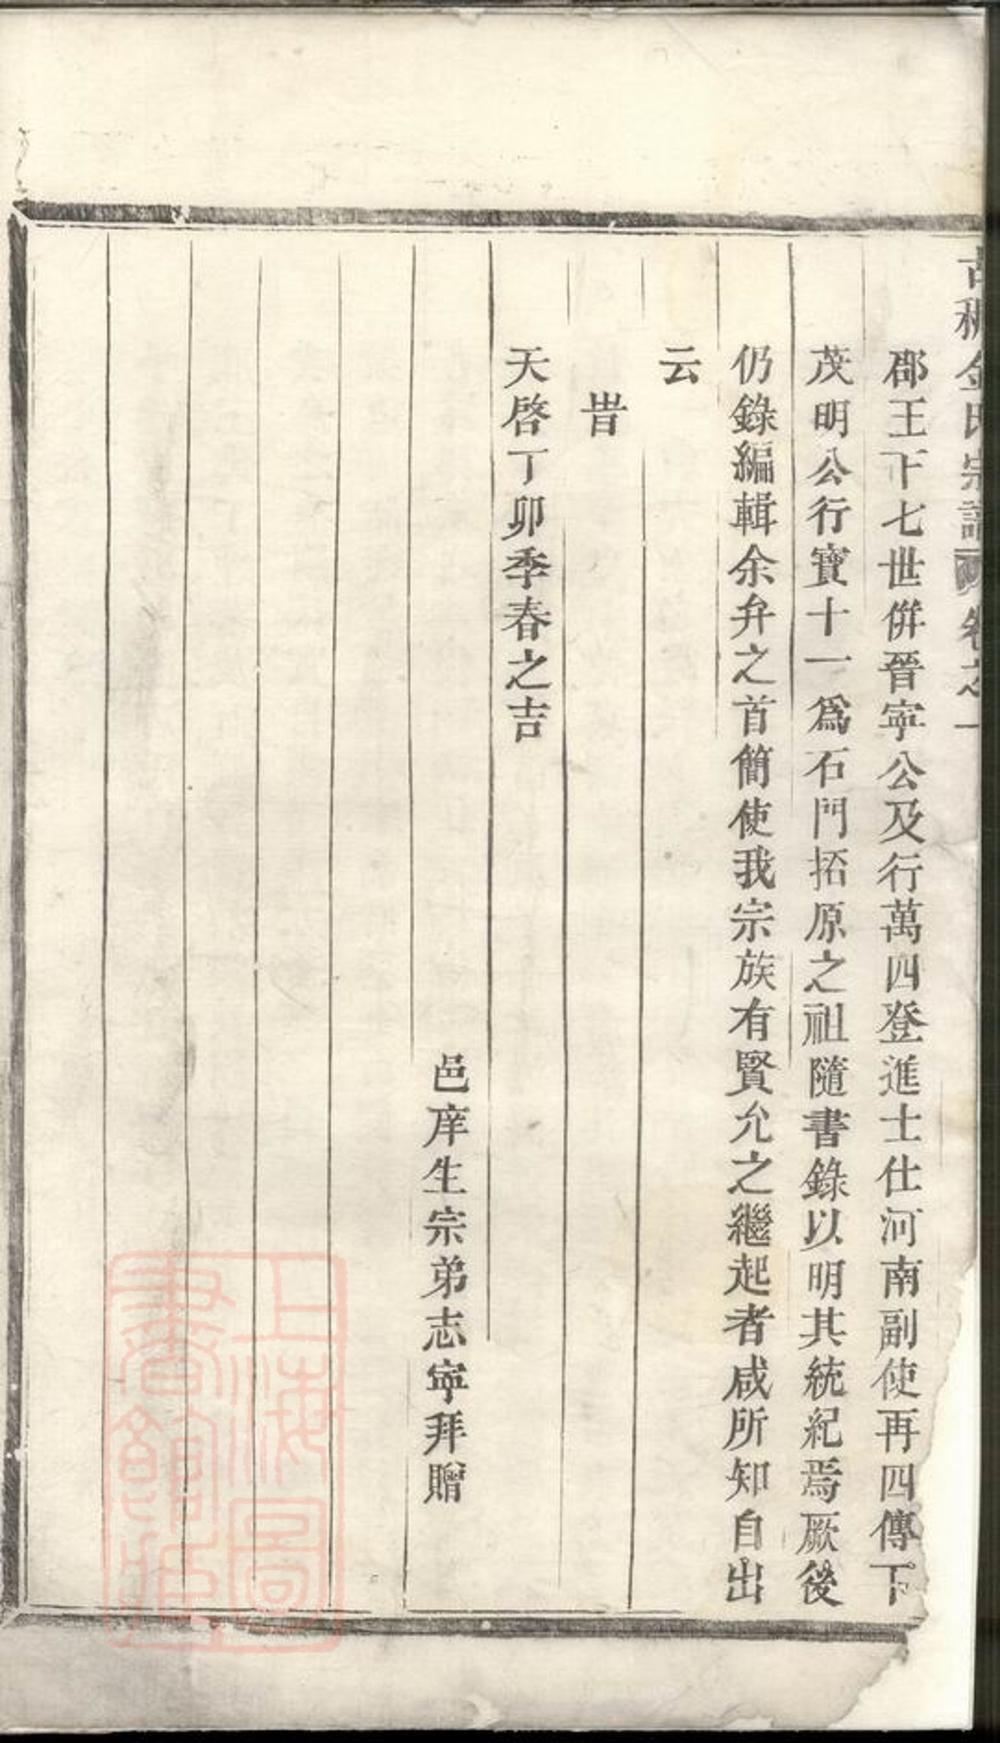 金氏宗譜 卷之一
郡王下七世倂晉寧公及行萬四登進士仕河南副使再四傳下
茂明公行寶十一爲石門拓原之祖隨書錄以明其統紀焉厥後
仍錄編輯余弁之首簡使我宗族有賢允之繼起者咸所知自出
云
旹
天啓丁卯季春之吉
邑庠生宗弟志寧拜贈
上海圖
書館藏